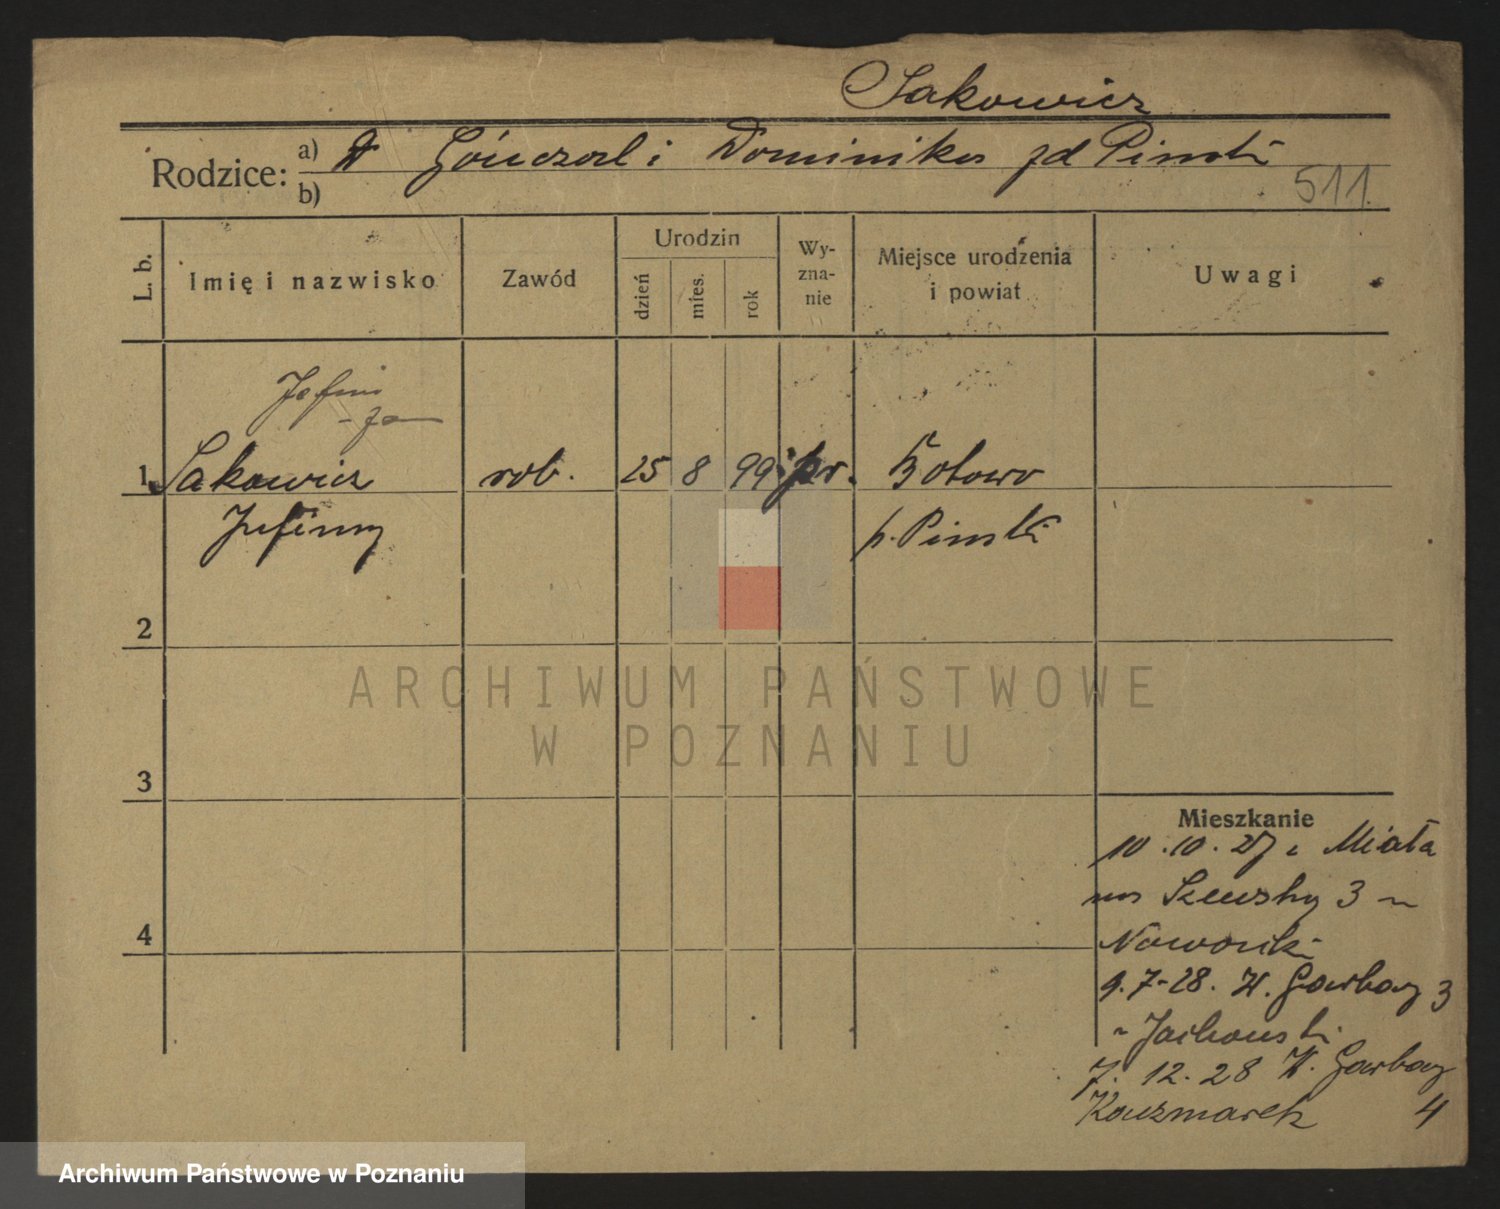 Sakowicz
Rodzice: a) i Dominika zd Pinski
b)
511.
L. b.
Imię i nazwisko
Zawód
Urodzin
dzień
mies.
rok
Wy-
zna-
nie
Miejsce urodzenia
i powiat
Uwagi
1 Sakowicz rob. 25 8 99 pr.
p. Pinski
2
ARCHIWUM PAŃSTWOWE
W POZNANIU
3
Mieszkanie
10.10.27 z Miała
na Szewska 3
4
Nowonski
9.7-28. W. Garbary 3
7. 12. 28 W. Garbary
Kaczmarek 4
Archiwum Państwowe w Poznaniu